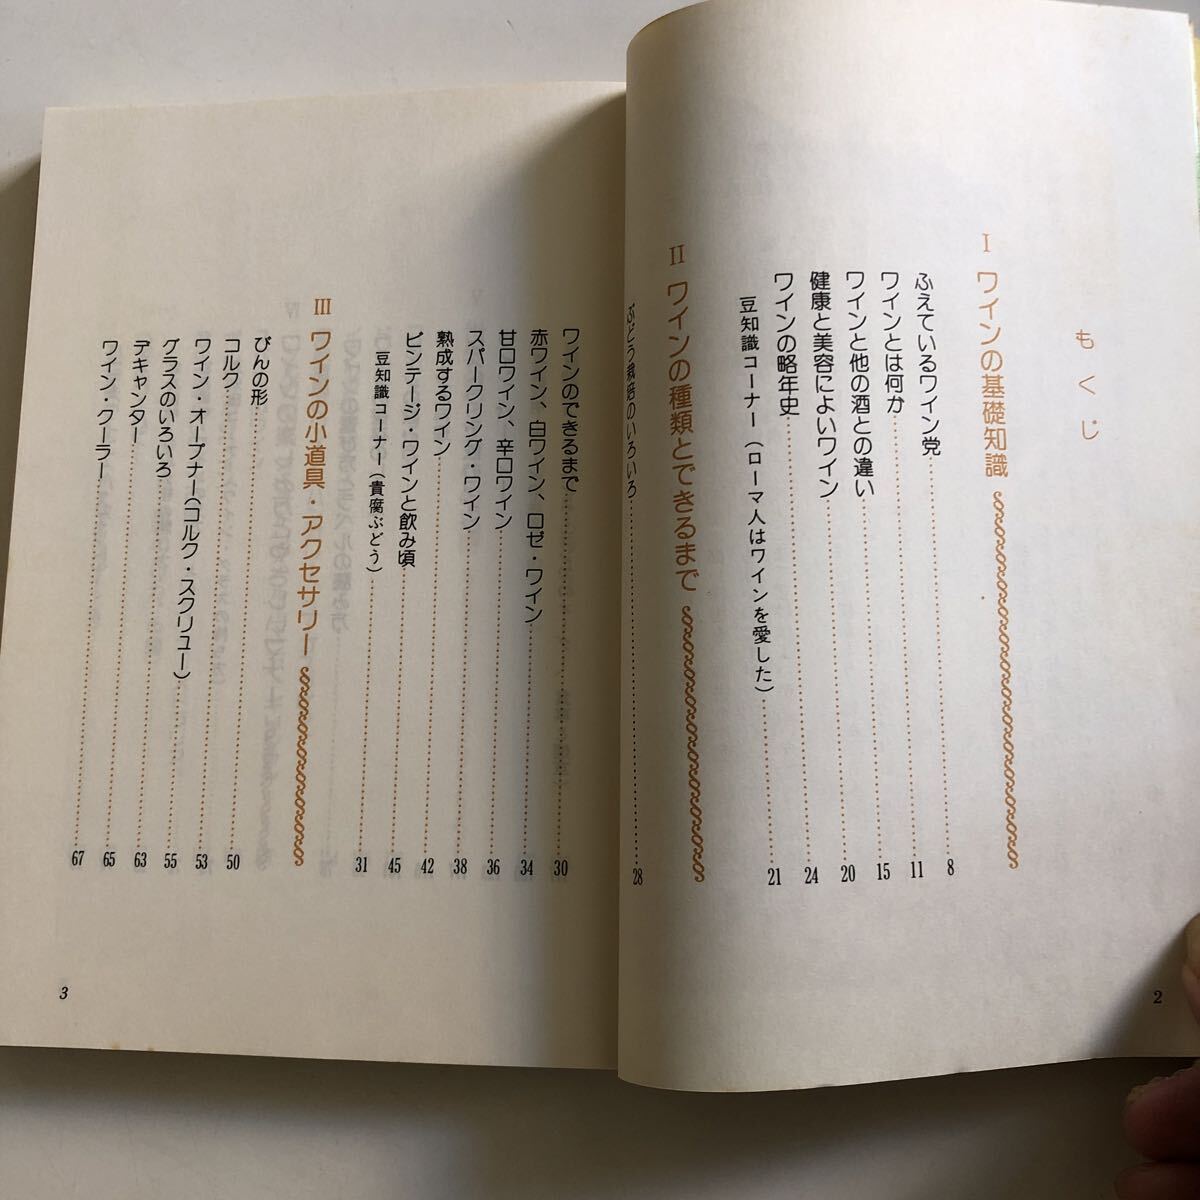 もくじ
I ワインの基礎知識
ふえているワイン党 8
ワインとは何か 11
ワインと他の酒との違い 15
健康と美容によいワイン 20
ワインの略年史 24
豆知識コーナー(ローマ人はワインを愛した) 21
II ワインの種類とできるまで
ぶどう栽培のいろいろ 28
2
ワインのできるまで 30
赤ワイン、白ワイン、ロゼ・ワイン 34
甘口ワイン、辛口ワイン 36
スパークリング・ワイン 38
熟成するワイン 42
ビンテージ・ワインと飲み頃 45
豆知識コーナー(貴腐ぶどう) 31
III ワインの小道具・アクセサリー
びんの形
コルク 50
ワイン・オープナー(コルク・スクリュー) 53
グラスのいろいろ 55
デキャンター 63
ワイン・クーラー 65
67
3